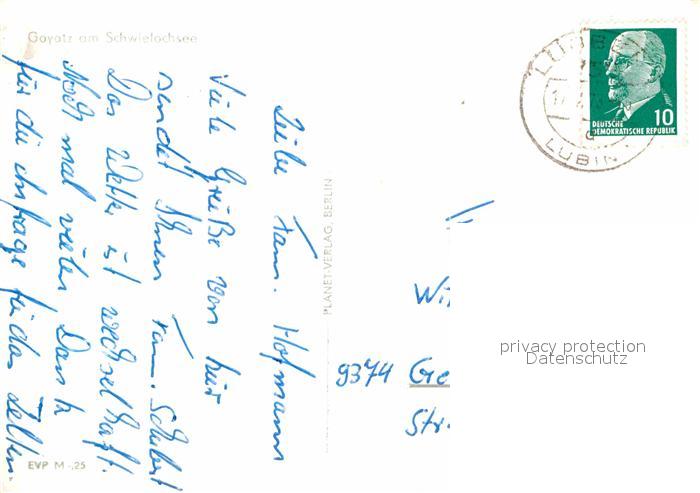 Goyatz am Schwielochsee
Liebe Fam. Hofmann
Viele Grüße von hier
sendet Ihnen Fam. Schubert
Das Wetter ist wechselhaft.
Noch mal vielen Dank
für die Anfrage für das Zelten.
EVP M -,25
PLANET-VERLAG, BERLIN
LUBIN
DEUTSCHE
DEMOKRATISCHE REPUBLIK
10
Wi
9374 Ge
Str.
privacy protection
Datenschutz